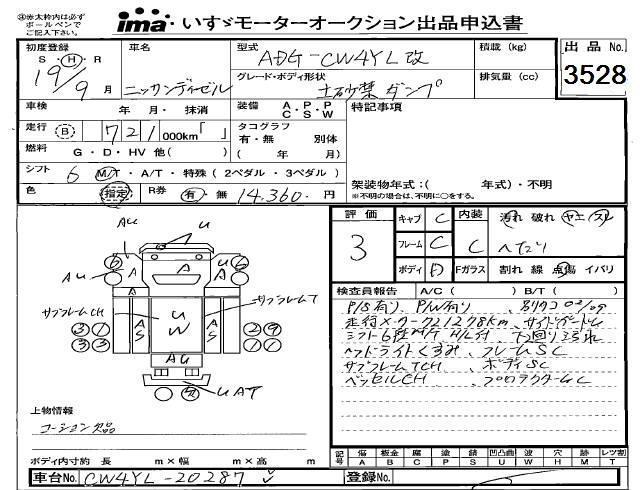 ㊟赤太枠内は必ずボールペンでご記入下さい。
ima いすゞモーターオークション出品申込書
初度登録 S・H・R 19/9月
車名 ニッサンディーゼル
型式 ADG-CW4YL改
グレード・ボディ形状 土砂禁ダンプ
積載 (kg)
排気量 (cc)
出品No.
3528
車検 年 月・抹消
装備 A.P.P C.S.W
特記事項
走行 B 721,000km「 」
タコグラフ 有・無 別体 ( 年 月)
燃料 G・D・HV 他( )
シフト 6 M/T・A/T・特殊(2ペダル・3ペダル)
架装物年式:( 年式)・不明
※不明の場合は、不明に○をする。
色 指定 R券 有・無 14,360.円
評価 3
キャブ C
フレーム C
ボディ D
内装 C
Fガラス
汚れ 破れ ヤニ スレ
ヘたり
割れ 線 点傷 イバリ
検査員報告 A/C( ) B/T( )
P/S有り P/W有り
走行メーター721278km
シフト6段M/T H/L付 下回りコ

ヘッドライトくすみ フレームSC
サブフレームTCH ボディSC
ベッセルCH
AU U
U
A A A
AU
サブフレームCH
サブフレームT
A S U W S A
31 29
33 31
AU
UAT
上物情報
コーション欠品
ボディ内寸約 長 m×幅 m×高 m
記号 傷A 板金B 腐C 塗P 錆S 凹凸曲U 波W 穴H 跡M レツ割T
車台No. CW4YL-20287
登録No.